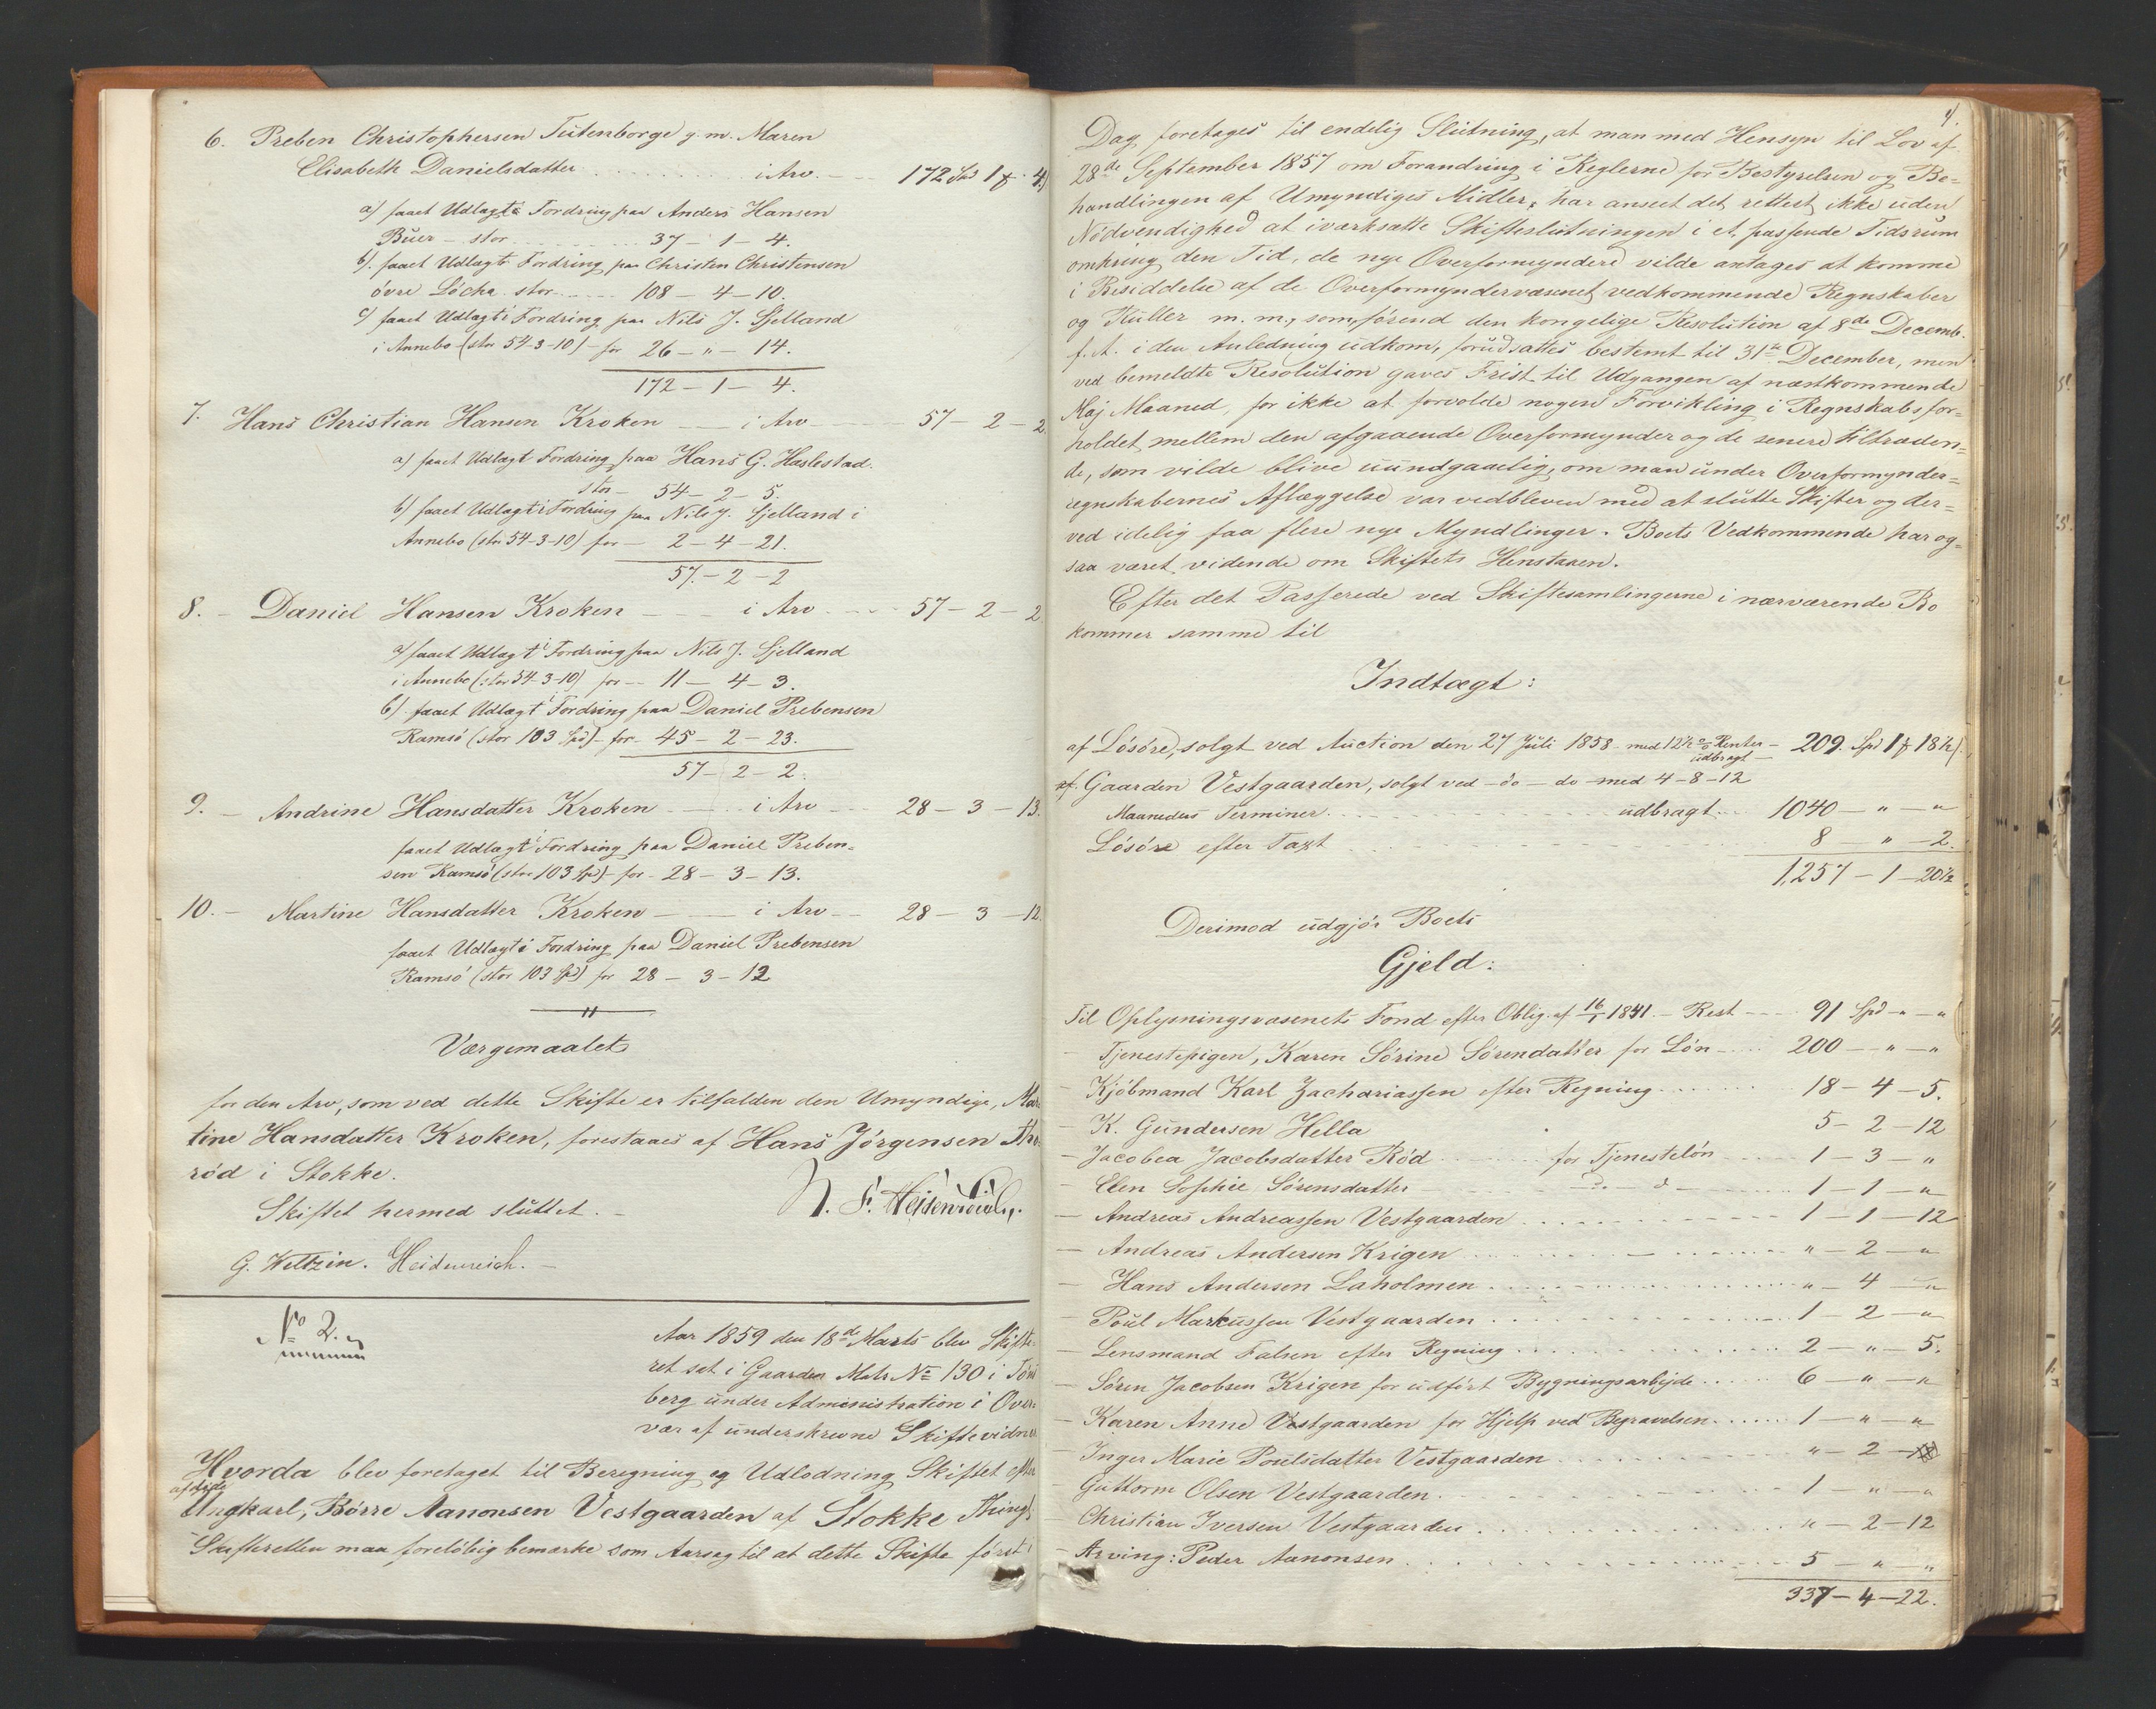 6. Preben Christophersen Tutenborge g. m. Maren
Elisabeth Danielsdatter i Arv. 172 Spd 1 ƒ 4
a) faaet Udlagt i Fordring paa Anders Hansen
Buer - stor 37 - 1 - 4.
b). faaet Udlagt i Fordring paa Christen Christensen
övre Löcka stor 108 - 4 - 10.
c) faaet Udlagt i Fordring paa Nils J. Sjelland
i Annebo (stor 54-3-10) - for 26 - " - 14.
172 - 1 - 4.
7. Hans Christian Hansen Kroken i Arv 57 - 2 - 2.
a) faaet Udlagt Fordring paa Hans G. Haslestad.
stor - 54 - 2 - 5.
b) faaet Udlagt i Fordring paa Nils J. Sjelland i
Annebo (stor 54-3-10) for - 2 - 4 - 21.
57 - 2 - 2
8. - Daniel Hansen Kroken i Arv 57 - 2 - 2
a) faaet Udlagt i Fordring paa Nils J. Sjelland
i Annebo (stor 54-3-10) for - 11 - 4 - 3.
b) faaet Udlagt i Fordring paa Daniel Prebensen
Ramsö (stor 103 Spd) - for - 45 - 2 - 23.
57 - 2 - 2.
9. - Andrine Hansdatter Kroken i Arv 28 - 3 - 13.
faaet Udlagt i Fordring paa Daniel Preben=
sen Ramsö (stor 103 Spd) - for - 28 - 3 - 13.
10. - Martine Hansdatter Kroken i Arv 28 - 3 - 12.
faaet Udlagt i Fordring paa Daniel Prebensen
Ramsö (stor 103 Spd) for 28 - 3 - 12
Værgemaalet
for den Arv, som ved dette Skifte er tilfalden den Umyndige, Mar
tine Hansdatter Kroken, forestaaes af Hans Jörgensen
röd i Stokke.
Skiftet hermed sluttet. -
G. Weltzin. Heidenreich. -
No 2.
Aar 1859 den 18de Marts blev Skifte
ret sat i Gaarden Matr No 130 i Töns
berg under Administration i Over=
vær af underskrevne Skiftevidner
Hvorda blev foretaget til Beregning og Udlodning Skiftet efter
afdöde
Ungkarl, Börre Aanonsen Vestgaarden af Stokke Thingl.
Skifteretten maa forelöbig bemærke som Aarsag til at dette Skifte först i
4.
Dag foretages til endelig Slutning, at man med Hensyn til Lov af
28de September 1857 om Forandring i Reglerne for Bestyrelsen og Be=
handlingen af Umyndiges Midler, har anseet det rettest, ikke uden
Nödvendighed at iværksætte Skifteslutningen i et passende Tidsrum
omkring den Tid, de nye Overformyndere vilde antages at komme
i Besiddelse af de Overformyndervæsenet vedkommende Regnskaber
og Kuller m. m., som, förend den kongelige Resolution af 8de Decemb.
f. A. i den Anledning udkom, forudsattes bestemt til 31te December, men
ved bemeldte Resolution gaves Frist til Udgangen af næstkommende
Maj Maaned, for ikke at forvolde nogen Forvikling i Regnskabsfor=
holdet mellem den afgaaende Overformynder og de senere tiltræden=
de, som vilde blive uundgaaelig, om man under Overformynder=
regnskabernes Aflæggelse var vedbleven med at slutte Skifter og der=
ved idelig faa flere nye Myndlinger. Boets Vedkommende har og=
saa været vidende om Skiftets Henstaaen.
Efter det Passerede ved Skiftesamlingerne i nærværende Bo
kommer samme til
Indtægt:
af Lösöre, solgt ved Auction den 27 Juli 1858 med 12½ % Renter - 209 Spd 1 ƒ 18½
udbragt
af Gaarden Vestgaarden, solgt ved - do - do med 4-8-12
Maaneders Terminer udbragt 1040 - " - "
Lösöre efter Taxt 8 - " - 2.
1,257 - 1 - 20½
Derimod udgjör Boets
Gjeld:
Til Oplysningsvæsenets Fond efter Oblig. af 16/1 1841 - Rest 91 Spd - " - "
- Tjenestepigen, Karen Sörine Sörendatter for Lön 200 - " - "
- Kjöbmand Karl Zachariassen efter Regning 18 - 4 - 5.
- K. Gundersen Hella 5 - 2 - 12
- Jacobea Jacobsdatter Röd for Tjenestelön 1 - 3 - "
- Elen Sophie Sörensdatter 1 - 1 - "
- Andreas Andreassen Vestgaarden 1 - 1 - 12
- Andreas Andersen Krigen " - 2 - "
- Hans Andersen Laholmen " - 4 - "
- Poul Markussen Vestgaarden 1 - 2 - "
- Lensmand Falsen efter Regning 2 - " - 5.
- Sören Jacobsen Krigen for udfört Bygningsarbejde 6 - " - "
- Karen Anne Vestgaarden for Hjelp ved Begravelsen 1 - " - "
- Inger Marie Poulsdatter Vestgaarden " - 2 -
- Guttorm Olsen Vestgaarden. 1 - " - "
- Christian Iversen Vestgaarden " - 2 - 12
- Arving: Peder Aanonsen 5 - " - "
337 - 4 - 22.